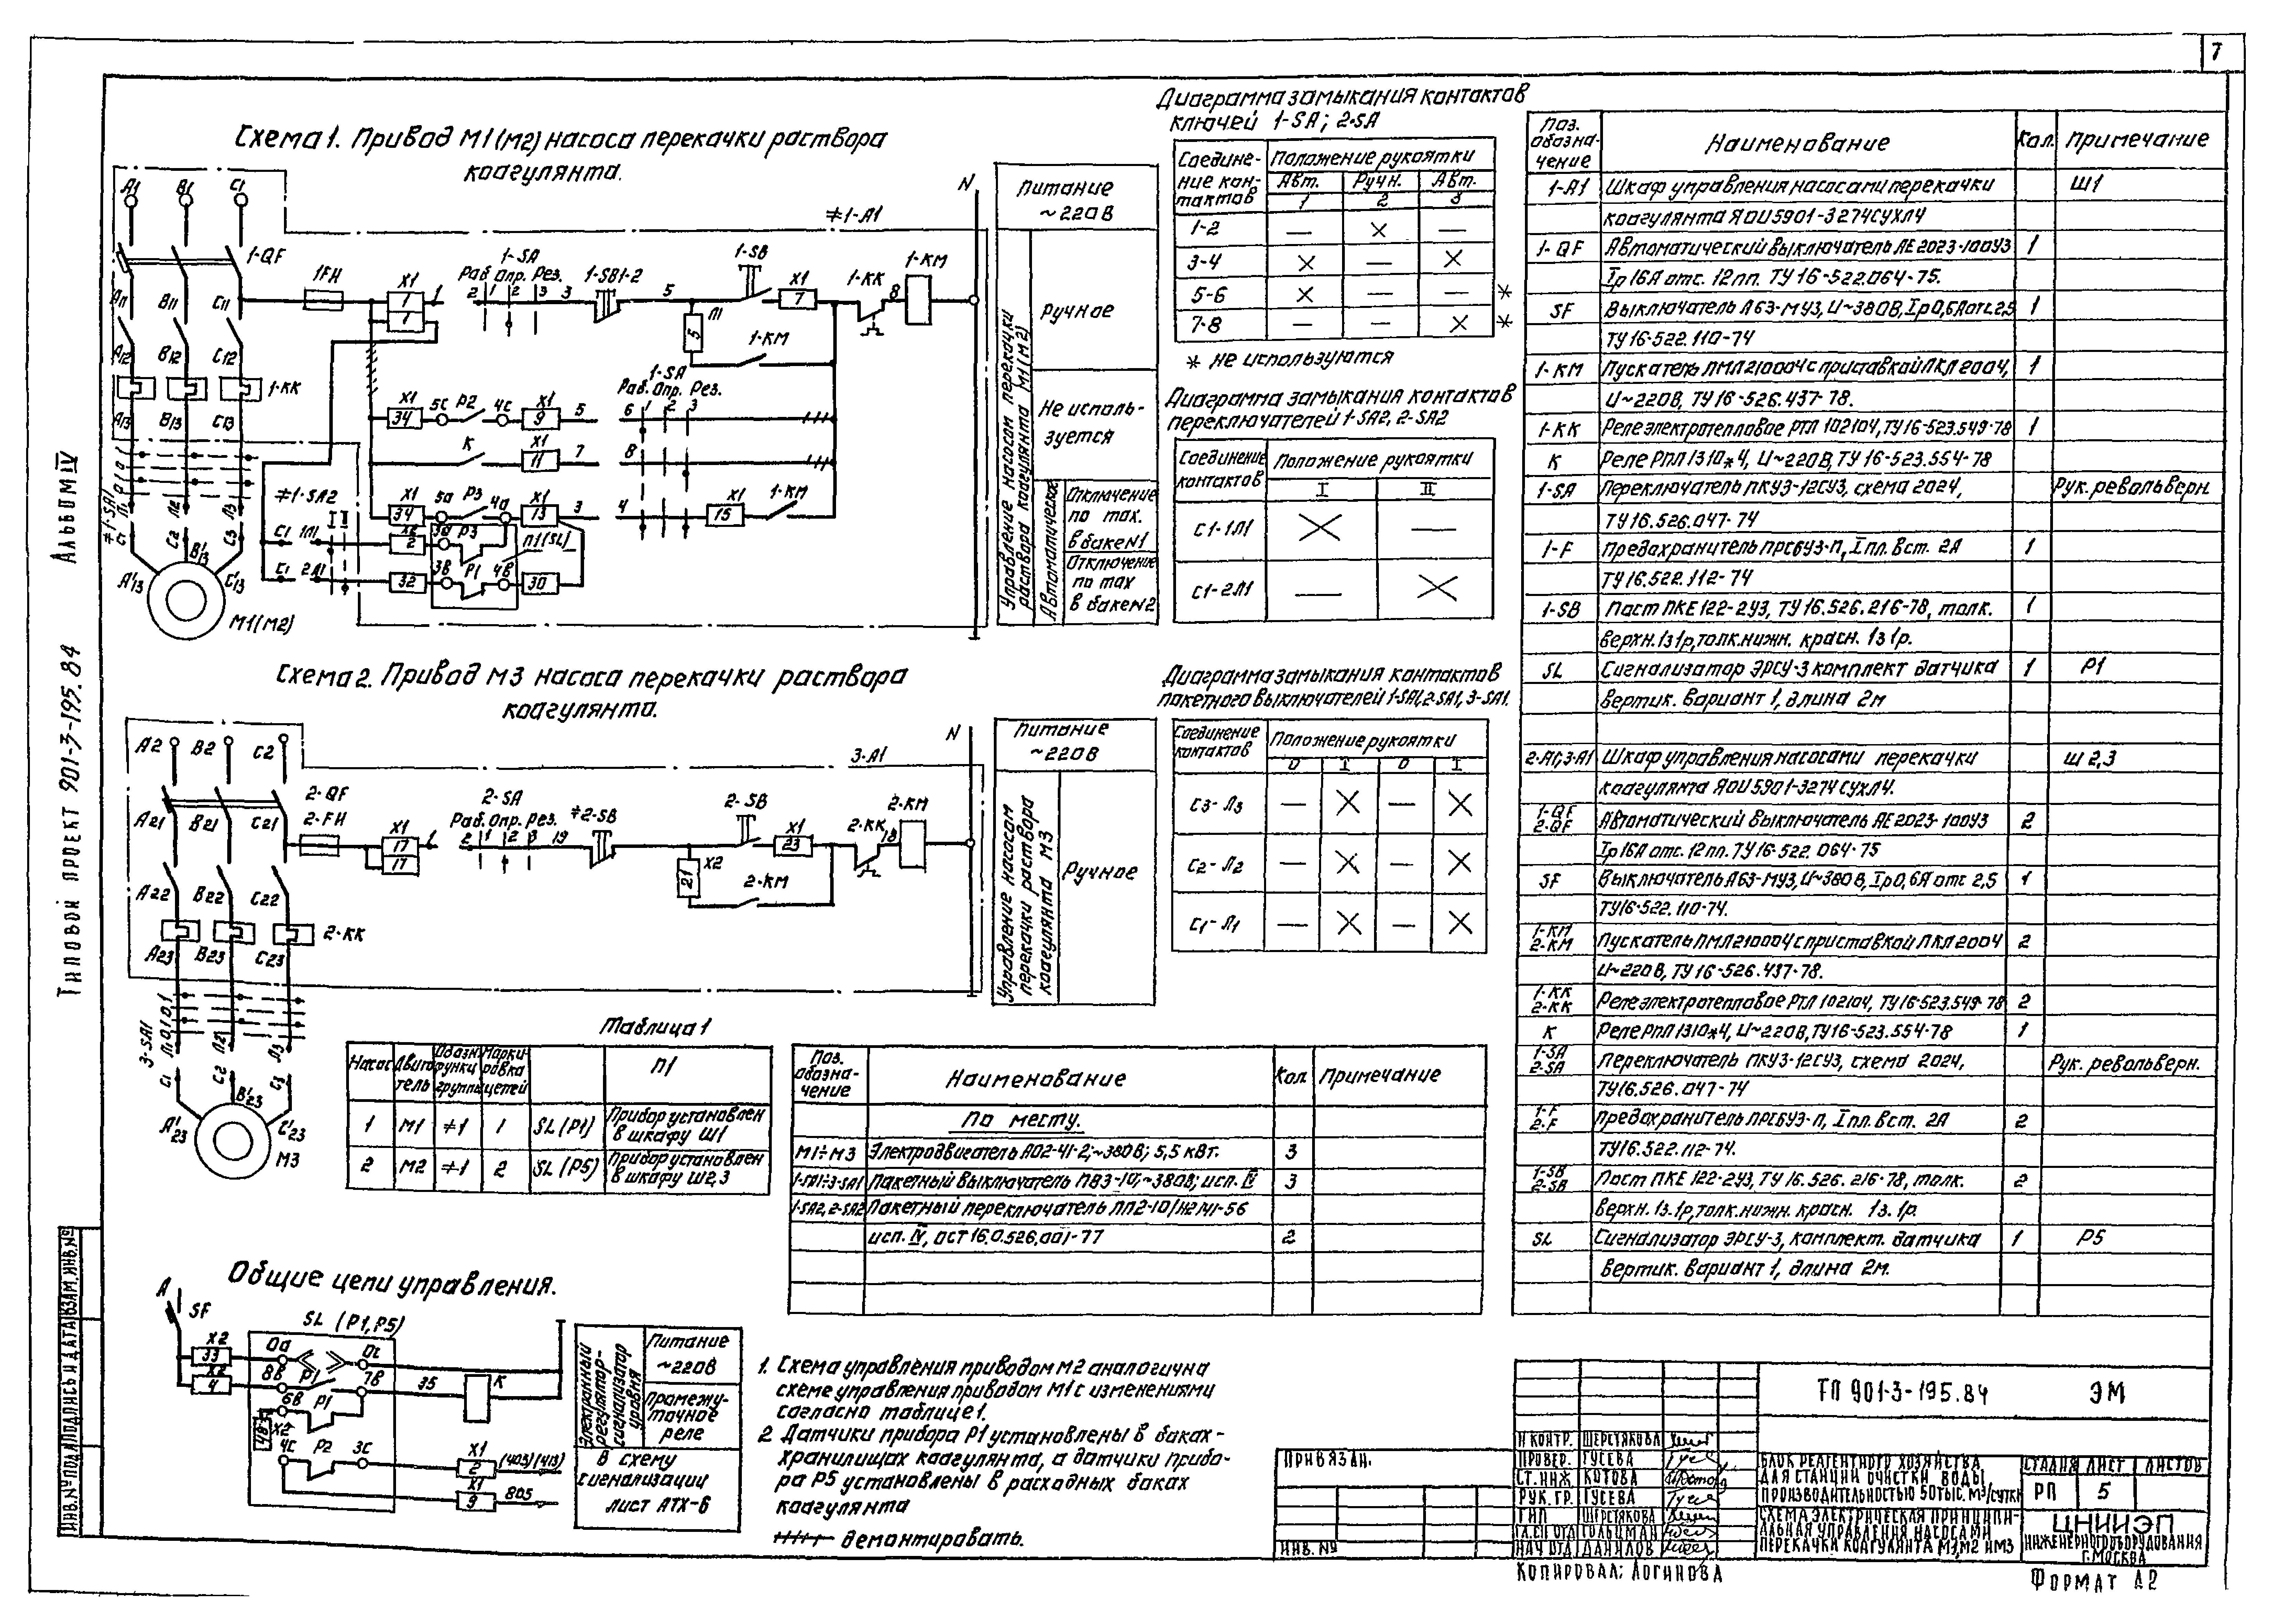 7
Схема 1. Привод М1(М2) насоса перекачки раствора
коагулянта.
А1 В1 С1
≠1-А1
N
1-QF
1FH
1-SA
Раб. Опр. Рез.
1-SB1-2
1-SB
1-KK
1-KM
А11 В11 С11
А12 В12 С12
1-KK
А13 В13 С13
≠1-SA1
≠1-SA2
М1(М2)
Питание
~220В
Управление насосом перекачки
раствора коагулянта М1(М2)
Ручное
Не исполь-
зуется
Автоматическое
Отключение
по max.
в баке N1
Отключение
по max
в баке N2
Схема 2. Привод М3 насоса перекачки раствора
коагулянта.
А2 В2 С2
3-А1
N
2-QF
2-FH
2-SA
Раб. Опр. Рез.
≠2-SB
2-SB
2-KK
2-KM
А21 В21 С21
А22 В22 С22
2-KK
А23 В23 С23
3-SA1
М3
Питание
~220В
Управление насосом
перекачки раствора
коагулянта М3
Ручное
Диаграмма замыкания контактов
ключей 1-SA; 2-SA
Соедине-
ние кон-
тактов
Положение рукоятки
Авт. Ручн. Авт.
1 2 3
1-2
3-4
5-6 *
7-8 *
* не используются
Диаграмма замыкания контактов
переключателей 1-SA2, 2-SA2
Соединение
контактов
Положение рукоятки
I II
С1-1Л1
С1-2Л1
Диаграмма замыкания контактов
пакетного выключателей 1-SA1, 2-SA1, 3-SA1.
Соединение
контактов
Положение рукоятки
0 I 0 I
С3-Л3
С2-Л2
С1-Л1
Таблица 1
Насос Двига-тель Обозн. функц. группы Марки-ровка цепей П1
1 М1 ≠1 1 SL (Р1) Прибор установлен
в шкафу Ш1
2 М2 ≠1 2 SL (Р5) Прибор установлен
в шкафу Ш2,3
Поз. обозна-чение Наименование Кол. Примечание
По месту.
М1÷М3 Электродвигатель АО2-41-2; ~380В; 5,5 кВт. 3
Пакетный выключатель ПВ3-10, ~380В; исп. IV 3
1-SA2, 2-SA2 Пакетный переключатель
исп. IV, ОСТ 16.0.526.001-77 2
Общие цепи управления.
А
SF
SL (Р1, Р5)
К
Электронный
регулятор-
сигнализатор
уровня
Питание
~220В
Промежу-
точное
реле
В схему
сигнализации
лист АТХ-6
1. Схема управления приводом М2 аналогична
схеме управления приводом М1 с изменениями
согласно таблице 1.
2 Датчики прибора Р1 установлены в баках-
хранилищах коагулянта, а датчики прибо-
ра Р5 установлены в расходных баках
коагулянта
демонтировать.
Поз. обозна-чение Наименование Кол. Примечание
1-А1 Шкаф управления насосами перекачки Ш1
коагулянта ЯОУ5901-3274СУХЛ4
1-QF Автоматический выключатель АЕ2023-100У3 1
Iр 16А отс. 12пп. ТУ 16-522.064-75.
SF Выключатель А63-МУ3, U~380В, Iр 0,6А отс. 2,5 1
ТУ 16-522.110-74
1-KM Пускатель ПМЛ210004 с приставкой ПКЛ2004, 1
U~220В, ТУ 16-526.437-78.
1-KK Реле электротепловое РТЛ 102104, ТУ 16-523.549-78 1
К Реле РПЛ 1310*4, U~220В, ТУ 16-523.554-78
1-SA Переключатель ПКУ3-12СУ3, схема 2024, Рук. револьверн.
ТУ 16.526.047-74
1-F Предохранитель ПРС6У3-П, Iпл. вст. 2А 1
ТУ 16.522.112-74
1-SB Пост ПКЕ 122-2У3, ТУ 16.526.216-78, толк. 1
верхн. 1з1р, толк. нижн. красн. 1з1р.
SL Сигнализатор ЭРСУ-3 комплект датчика 1 Р1
вертик. вариант 1, длина 2м
2-А1, 3-А1 Шкаф управления насосами перекачки Ш2,3
коагулянта ЯОУ5901-3274СУХЛ4.
1-QF
2-QF Автоматический выключатель АЕ2023-100У3 2
Iр 16А отс. 12пп. ТУ 16-522.064-75
SF Выключатель А63-МУ3, U~380В, Iр 0,6А отс 2,5 1
ТУ16-522.110-74.
1-KM
2-KM Пускатель ПМЛ210004 с приставкой ПКЛ2004 2
U~220В, ТУ 16-526.437-78.
1-KK
2-KK Реле электротепловое РТЛ 102104, ТУ16-523.549-78 2
К Реле РПЛ 1310*4, U~220В, ТУ16-523.554-78 1
1-SA
2-SA Переключатель ПКУ3-12СУ3, схема 2024, Рук. револьверн.
ТУ16.526.047-74
1-F
2-F Предохранитель ПРС6У3-П, Iпл. вст. 2А 2
ТУ16.522.112-74.
1-SB
2-SB Пост ПКЕ 122-2У3, ТУ 16.526.216-78, толк. 2
верхн. 1з.1р, толк. нижн. красн. 1з.1р.
SL Сигнализатор ЭРСУ-3, комплект. датчика 1 Р5
вертик. вариант 1, длина 2м.
ТП 901-3-195.84 ЭМ
Н КОНТР. ШЕРСТЯКОВА
ПРОВЕР. ГУСЕВА
СТ. ИНЖ КОТОВА
РУК. ГР. ГУСЕВА
ГИП ШЕРСТЯКОВА
ГЛ.СП ОТД ГОЛЬЦМАН
НАЧ ОТД ДАНИЛОВ
БЛОК РЕАГЕНТНОГО ХОЗЯЙСТВА
ДЛЯ СТАНЦИИ ОЧИСТКИ ВОДЫ,
ПРОИЗВОДИТЕЛЬНОСТЬЮ 50 ТЫС. М³/СУТКИ
СТАДИЯ ЛИСТ ЛИСТОВ
РП 5
СХЕМА ЭЛЕКТРИЧЕСКАЯ ПРИНЦИПИ-
АЛЬНАЯ УПРАВЛЕНИЯ НАСОСАМИ
ПЕРЕКАЧКИ КОАГУЛЯНТА М1, М2 И М3
ЦНИИЭП
ИНЖЕНЕРНОГО ОБОРУДОВАНИЯ
Г. МОСКВА
ПРИВЯЗАН.
ИНВ. №
КОПИРОВАЛ: ЛОГИНОВА
ФОРМАТ А2
ТИПОВОЙ ПРОЕКТ 901-3-195.84 АЛЬБОМ IV
ИНВ. № ПОДЛ. ПОДПИСЬ И ДАТА ВЗАМ. ИНВ. №